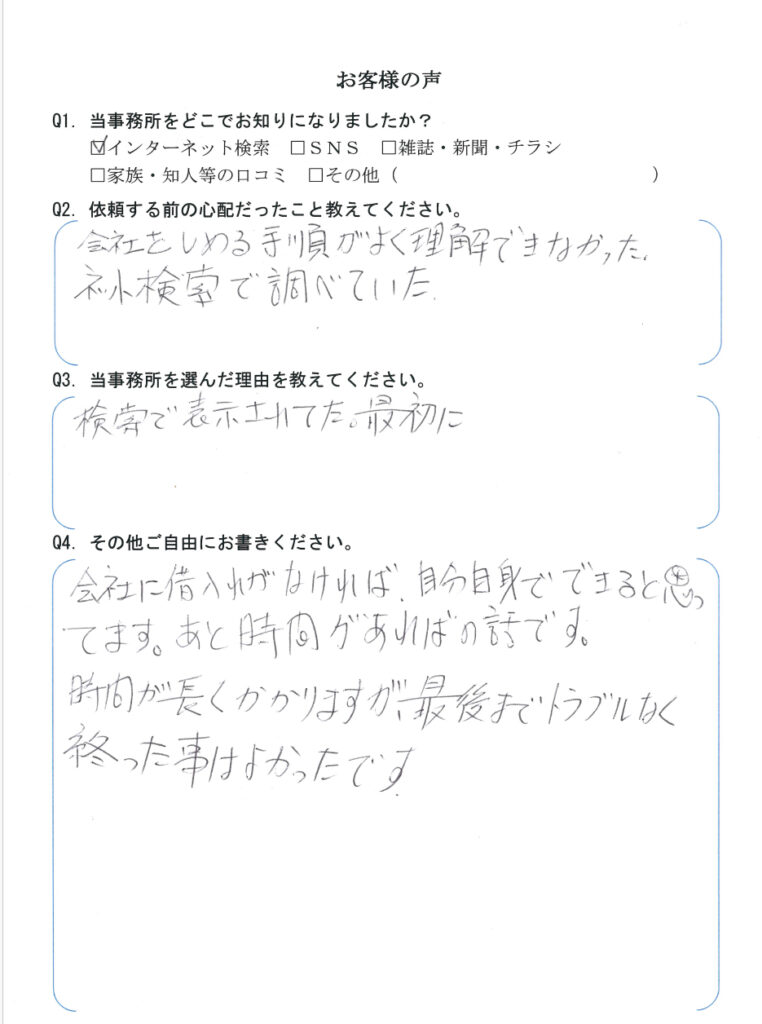 お客様の声
Q1. 当事務所をどこでお知りになりましたか？
☑インターネット検索 □ＳＮＳ □雑誌・新聞・チラシ
□家族・知人等の口コミ □その他（ ）
Q2. 依頼する前の心配だったこと教えてください。
会社をしめる手順がよく理解できなかった、
ネット検索で調べていた
Q3. 当事務所を選んだ理由を教えてください。
検索で表示されてた。最初に
Q4. その他ご自由にお書きください。
会社に借入れがなければ、自分自身でできると思っ
てます。あと時間があればの話です。
時間が長くかかりますが、最後までトラブルなく
終った事はよかったです